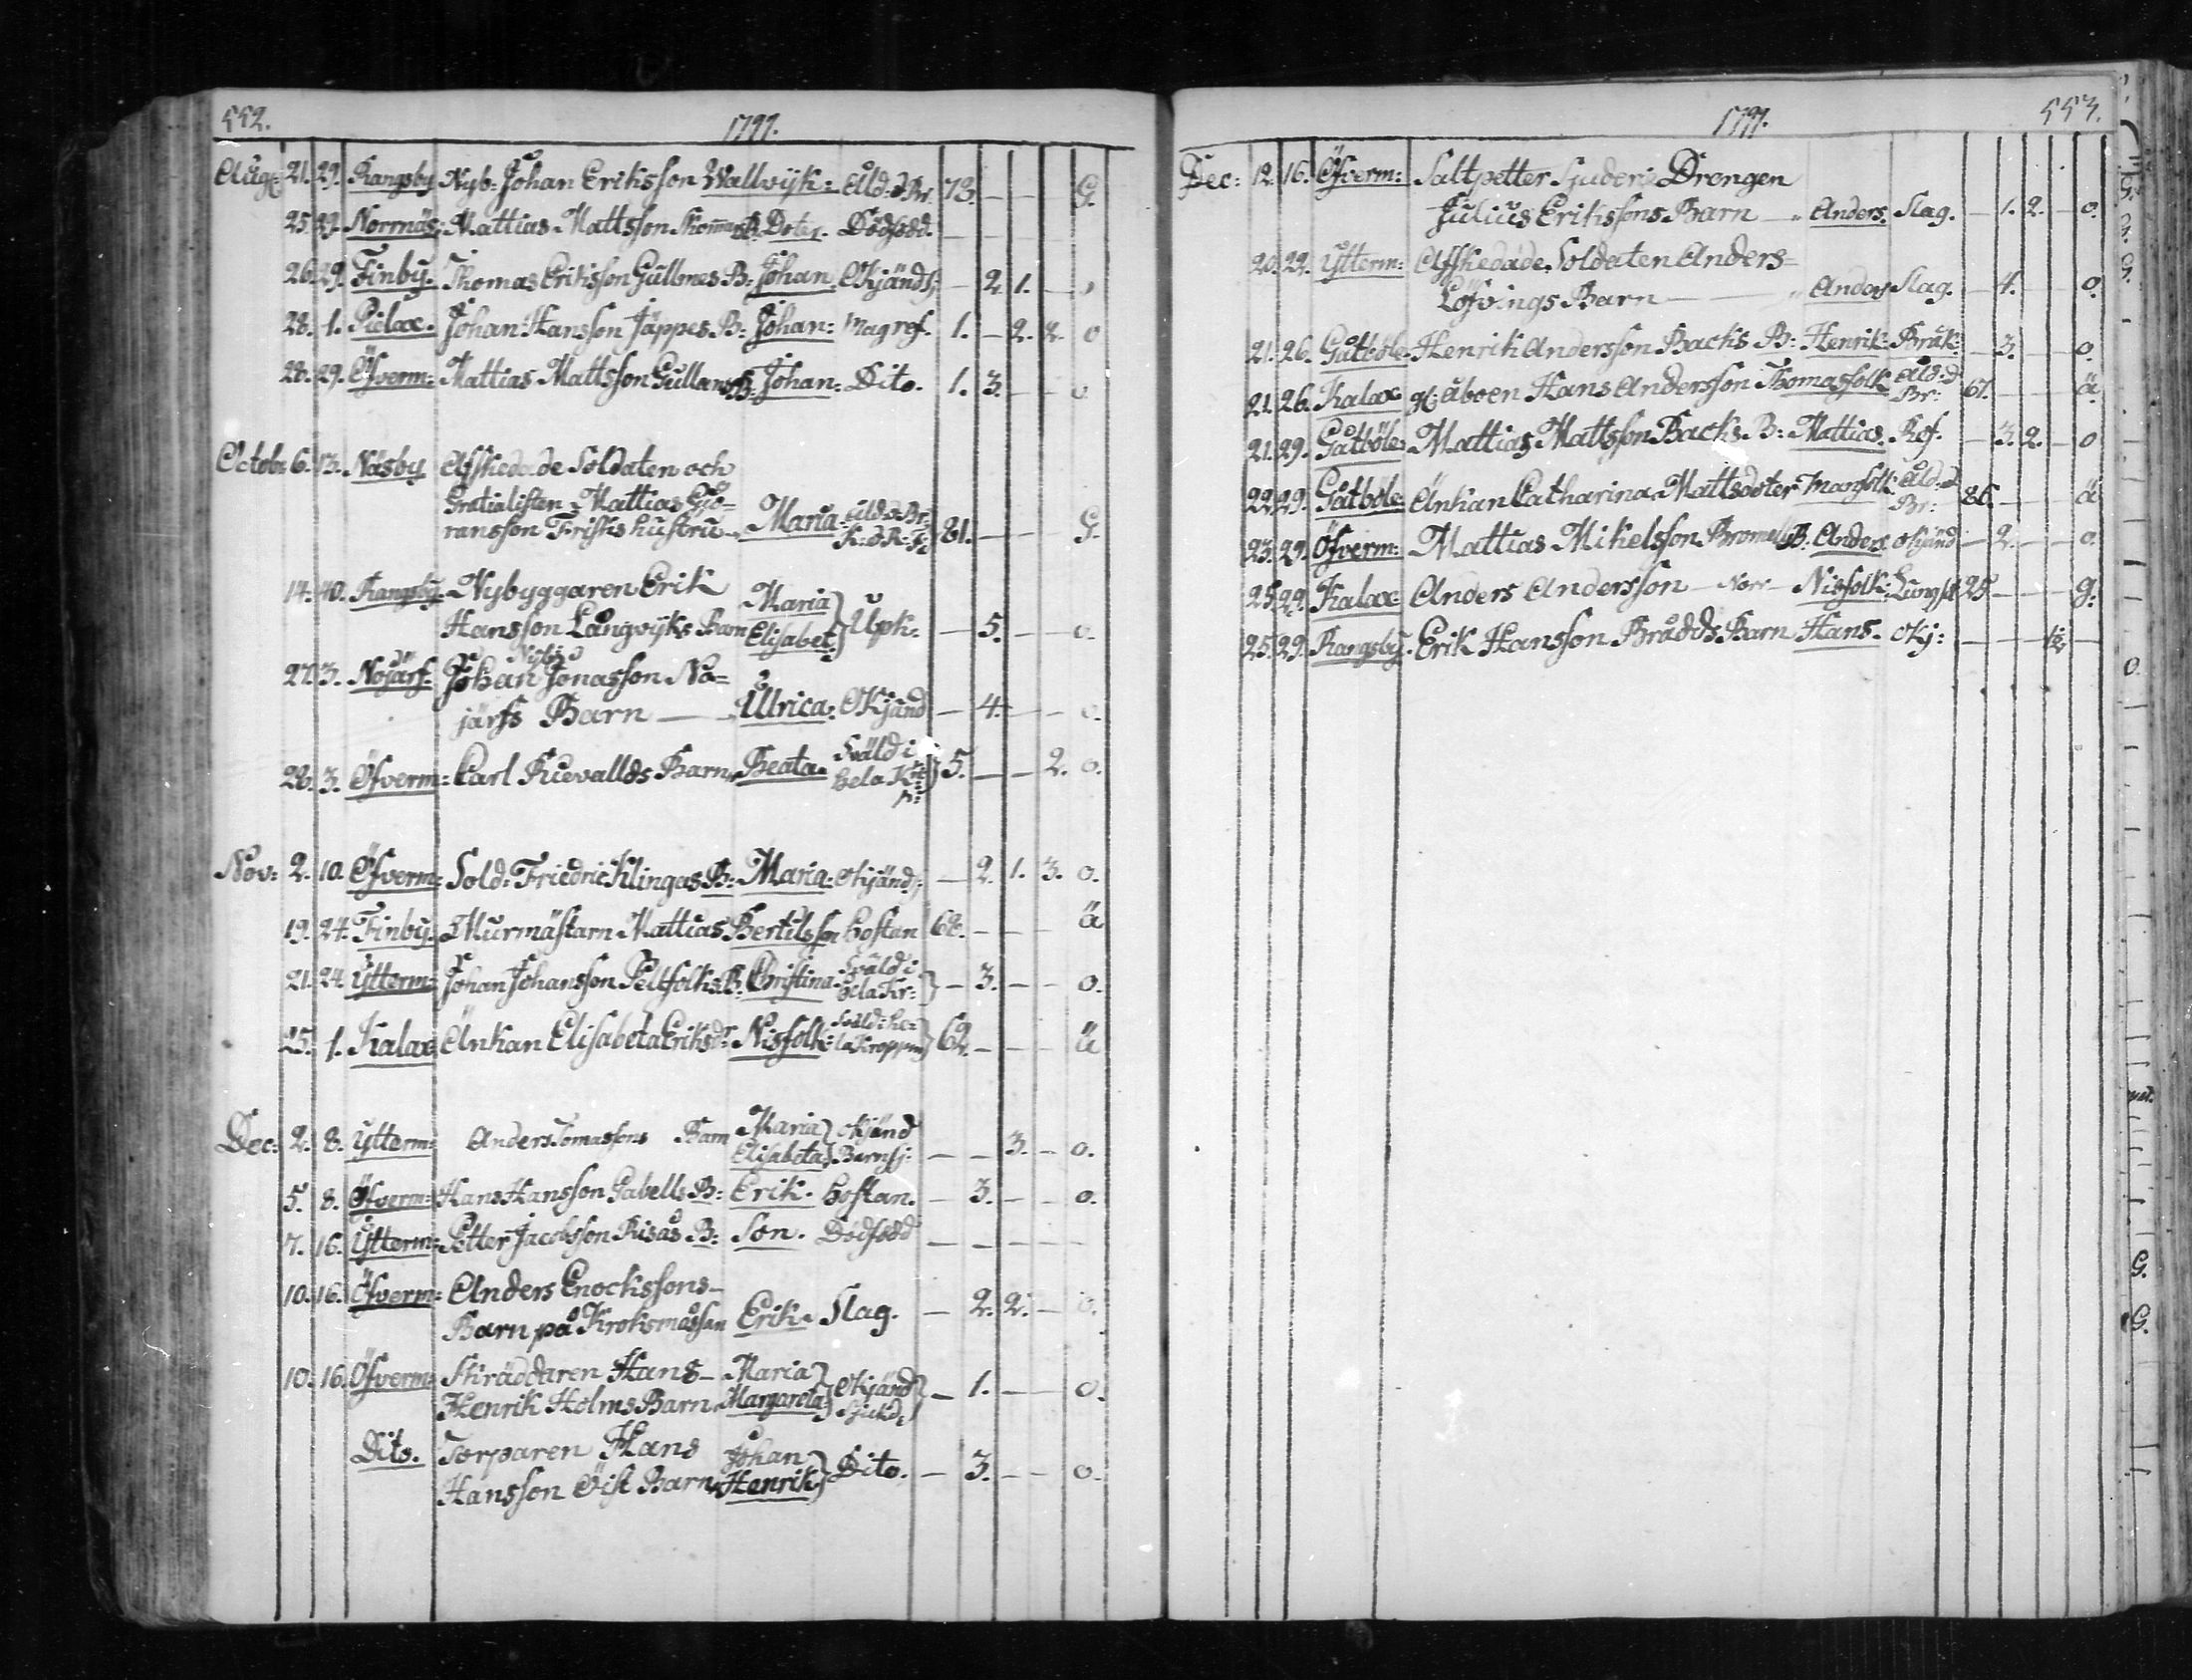 552.
1797.
Aug: 21. 29. Rangsby Nyb: Johan Eriksson Wallvijk: Åld: d Br. 73. — — — G.
25. 29. Norrnäs: Mattias Mattsson B. Doter. Dödfödd.
26. 29. Finby. Thomas Eriksson Gullmes B: Johan. Okjänd: — 2. 1. —
28. 1. Pielax. Johan Hansson Jäppes B: Johan: Mag ref. 1. — 2. 2. 0
28. 29. Öfverm: Mattias Mattsson Gullans B: Johan: Dito. 1. 3. — — 0.
Octobr 6. 13. Näsby Afskedade Soldaten och
Gratialisten Mattias Gjö-
ransson Frisks hustru Maria: Åld: d: Br: 81. — — — G.
14. Rangsby. Nybyggaren Erik Maria
Hansson Långvijks Barn Elisabet} Upk: — 5. — — 0.
27. 3. Nojärf. Johan Jonasson No=
järfs Barn — Ulrica: Okjänd — 4. — — 0.
28. 3. Öfverm: Carl Ruevallds Barn, Beata. Svåld i
hela Kr: } 5. — — 2. 0.
Nov: 2. 10. Öfverm: Sold: Fridric Klingas B: Maria: Okjänd: — 2. 1. 3. 0.
19. 24. Finby. Murmästarn Mattias Bertilsson hostan 68. — — — ä
21. 24. Ytterm: Johan Johansson Peltfolks B: Christina. Svåld i
hela Kr: } — 3. — — 0.
25. 1. Kalax Änkan Elisabeta Eriksdr Nisfolk: Svåld i he=
la kroppen} 62. — — — ä
Dec: 2. 8. Ytterm: Anders Tomassons Barn Maria
Elisabeta} Okjänd
Barnsj: — — 3. — 0.
5. 8. Öfverm: Hans Hansson Gabells B: Erik. hostan. — 3. — — 0.
7. 16. Ytterm: Petter Jacobsson Risås B: Son. Dödfödd — — — —
10. 16. Öfverm: Anders Enockssons—
Barn på Kroksmåssan Erik. Slag. — 2. 2. — 0.
10. 16. Öfverm: Skräddaren Hans— Maria
Henrik Holms Barn, Margareta} Okjänd
Sjukd:} — 1. — — 0.
Dito. Torparen Hans Johan
Hansson Öist Barn, Henrik} Dito. — 3. — — 0.
1797. 553.
Dec: 12. 16. Öfverm: Saltpetter Sjuderi Drengen
Julius Erikssons Barn — Anders. Slag. — 1. 2. — 0.
20. 22. Ytterm: Afskedade Soldaten Anders=
Löfvings Barn — Anders Slag. — 4. — 0.
21. 26. Gåtböle Henrik Andersson Backs B: Henrik: Bråk: — 3. — 0.
21. 26. Kalax åboen Hans Andersson Thomasfolk Åld: d
Br: 67. — — ä.
21. 29. Gåtböle: Mattias Mattsson Backs B: Mattias. Ref. — 3. 2. — 0
22. 29. Gåtböle: Änkan Catharina Mattsdoter Mansfolk: Åld: d
Br: 86. — — ä
23. 29. Öfverm: Mattias Mikelsson B. Anders Okjänd — 2. — — 0.
25. 29. Kalax Anders Andersson — Norr— Nisfolk: 25 — — — g.
25. 29. Rangsby. Erik Hansson Brådds Barn Hans. Okj: — — — —